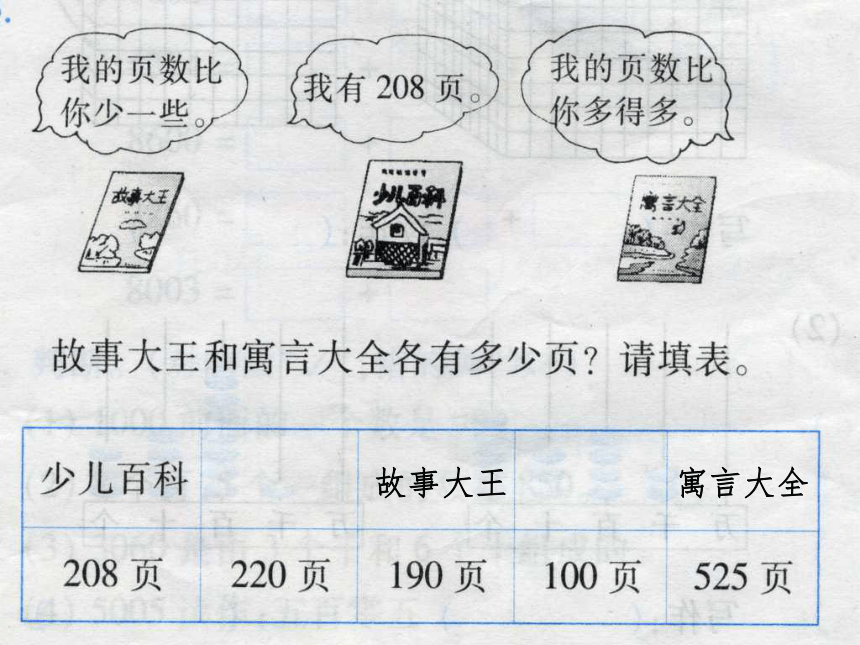 我的页数比
你少一些。
我有 208 页。
我的页数比
你多得多。
故事大王
少儿百科
寓言大全
故事大王和寓言大全各有多少页？请填表。
少儿百科 故事大王 寓言大全
208 页 220 页 190 页 100 页 525 页